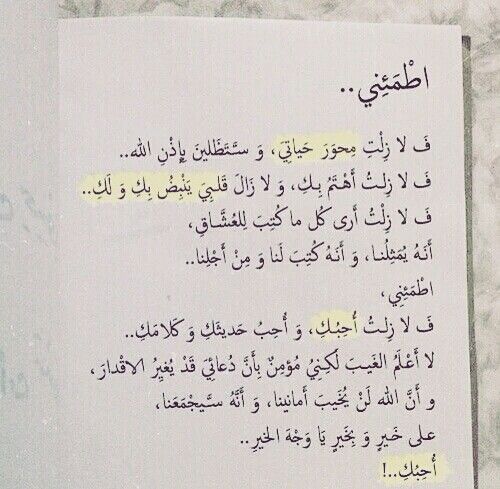 اطْمَئِنِي..
فَ لا زِلْتِ مِحوَرَ حَياتِيَ، وَ سَتَظَلينَ بِإِذْنِ الله..
فَ لا زِلتُ أَهْتَمُ بِكِ، وَ لا زَالَ قَلبِيَ يَنْبِضُ بِكِ وَ لَكِ..
فَ لا زِلْتُ أَرى كُل ما كُتِبَ لِلعُشَّاقِ،
أَنَهُ يُمَثِلُنا، وَ أَنَهُ كُتِبَ لَنا وَ مِنْ أَجْلِنا..
اطْمَئِنِي،
فَ لا زِلتُ أُحِبُكِ، وَ أُحِبُ حَديثَكِ وَ كَلامَكِ..
لا أَعْلَمُ الغَيبَ لَكِنِيُ مُؤمِنٌ بِأَنَّ دُعائِيَ قَدْ يُغيِرُ الاقْدارَ،
و أَنَّ الله لَنْ يُخَيبَ أَمانينا، وَ أَنَّهُ سَيَجْمَعَنا،
على خَيرٍ وَ بِخَيرٍ يَا وَجْهَ الخَيرِ..
أُحِبُكِ..!